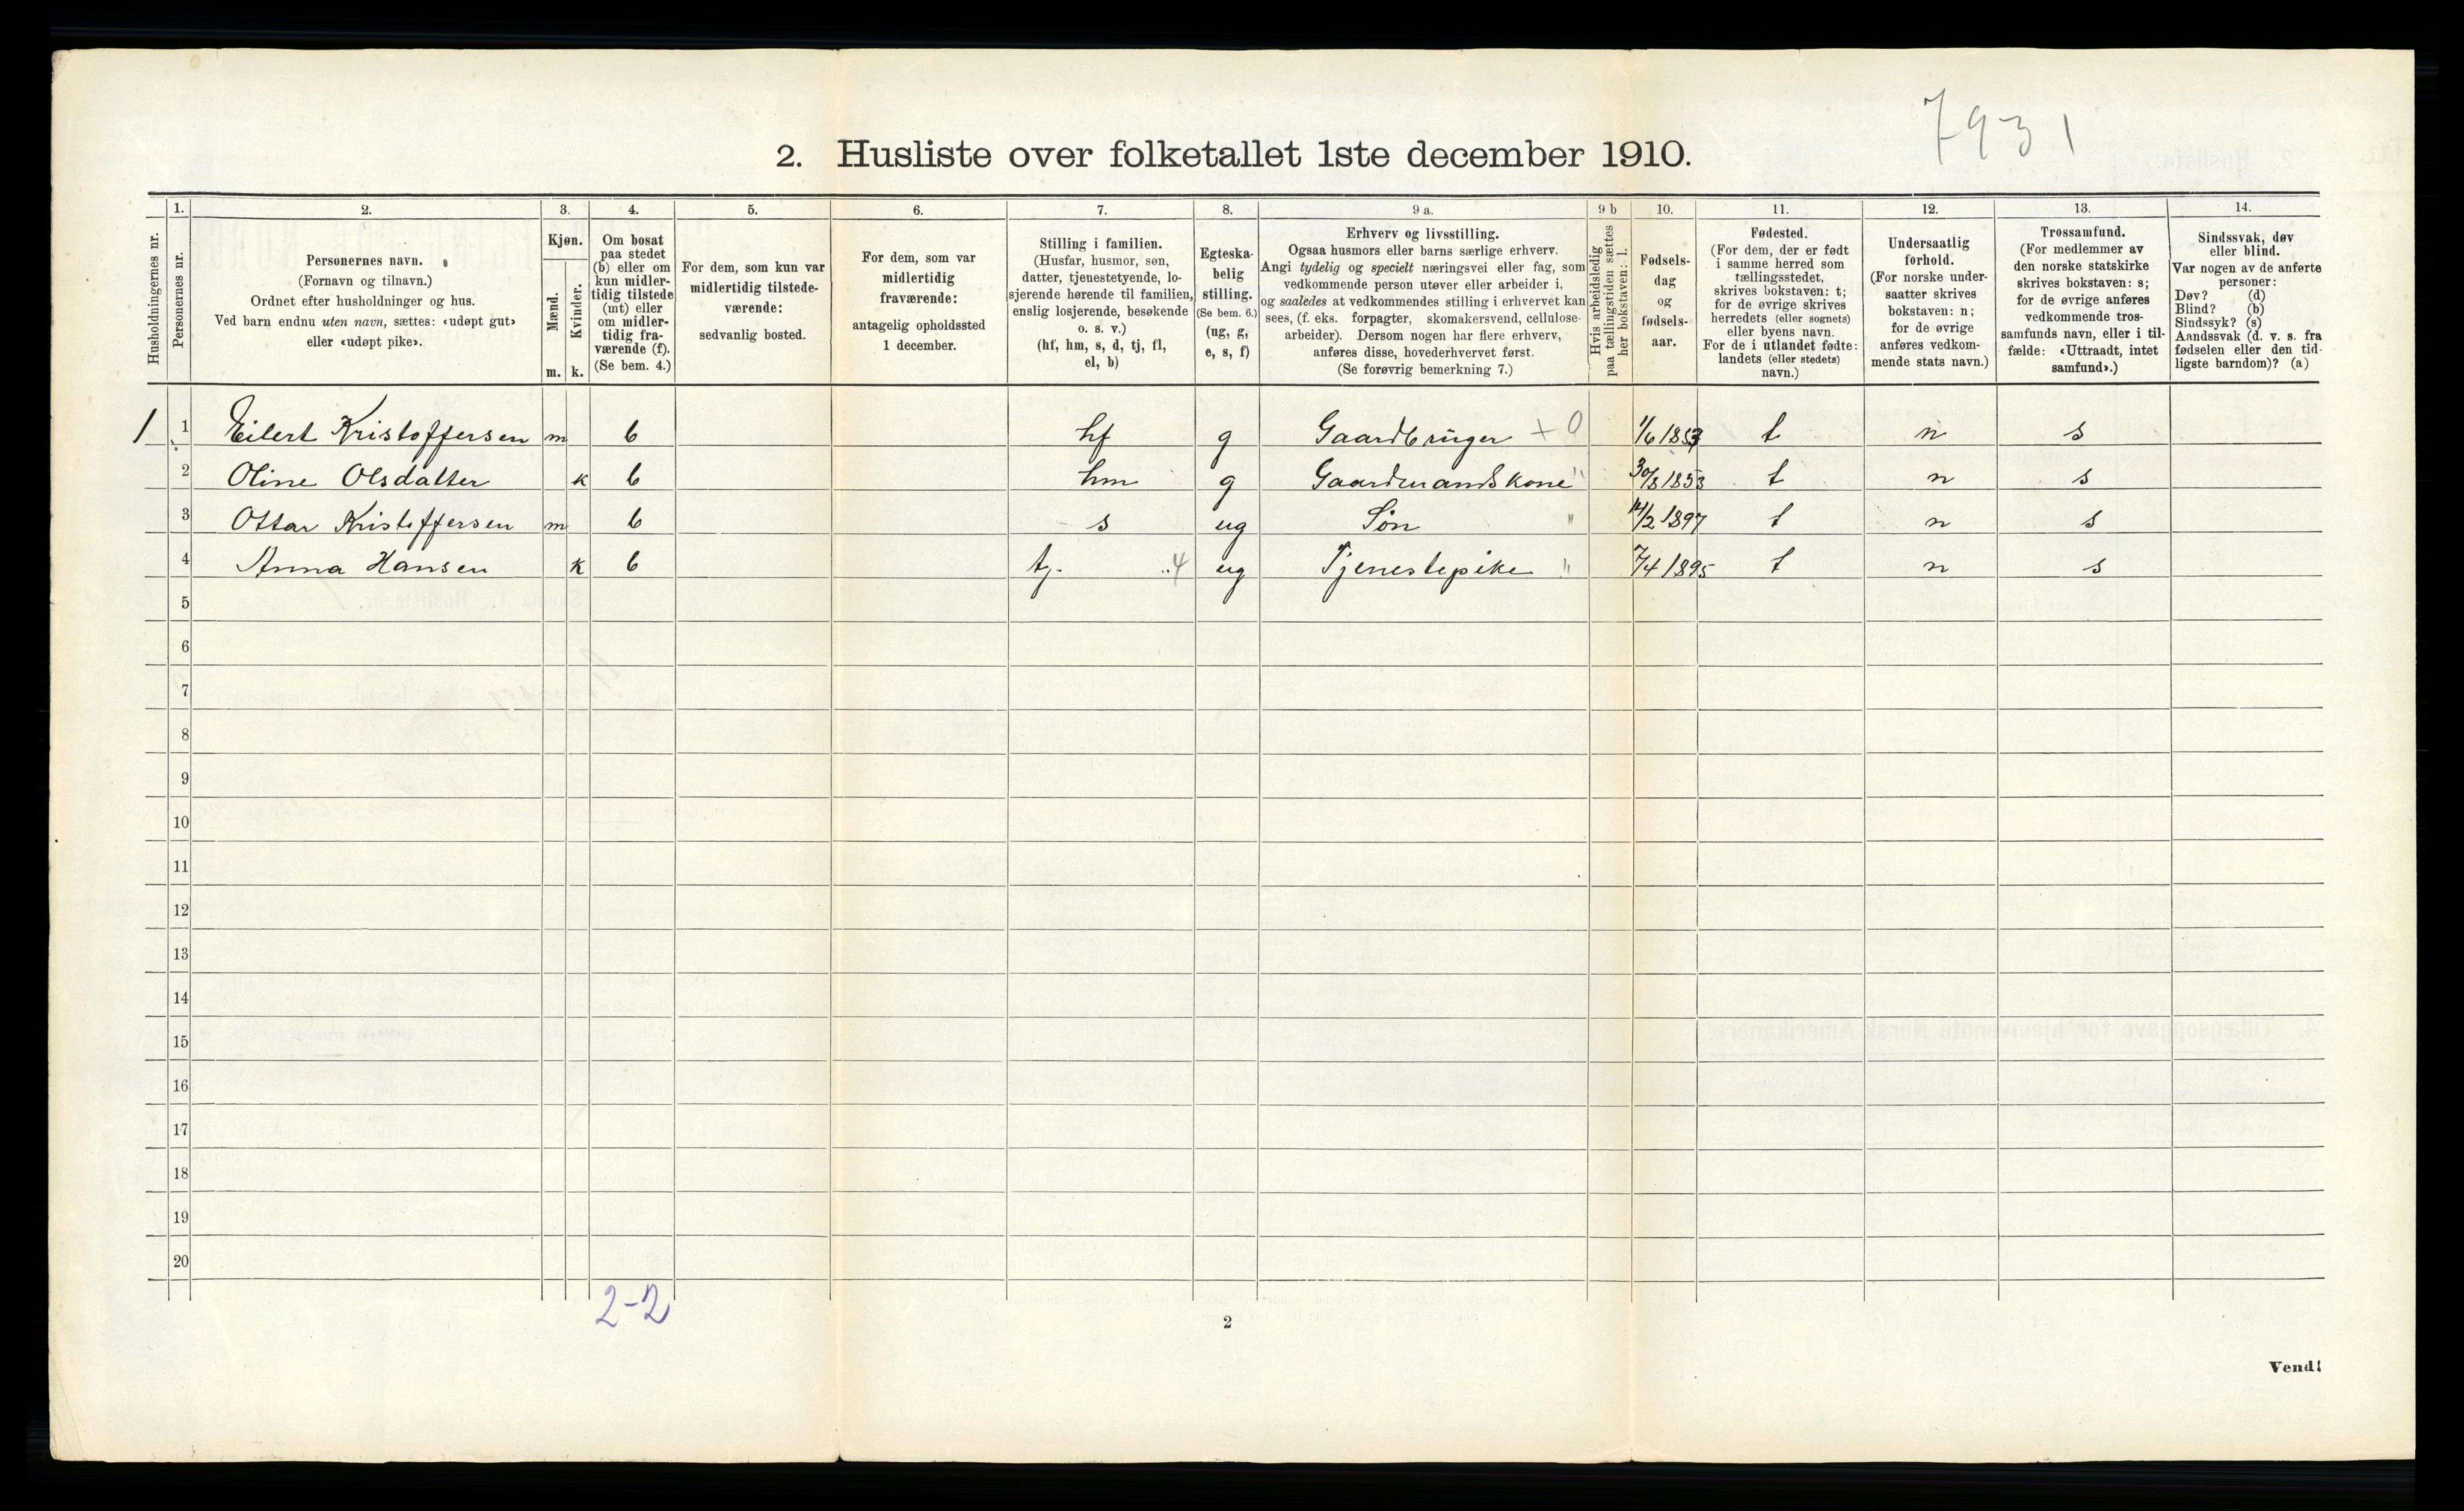 7931
2. Husliste over folketallet 1ste december 1910.
Husholdningernes nr.
1.
Personernes nr.
2.
Personernes navn.
(Fornavn og tilnavn.)
Ordnet efter husholdninger og hus.
Ved barn endnu uten navn, sættes: «udøpt gut»
eller «udøpt pike».
3.
Kjøn.
Mænd.
Kvinder.
m. k.
4.
Om bosat
paa stedet
(b) eller om
kun midler-
tidig tilstede
(mt) eller
om midler-
tidig fra-
værende (f).
(Se bem. 4.)
5.
For dem, som kun var
midlertidig tilstede-
værende:
sedvanlig bosted.
6.
For dem, som var
midlertidig
fraværende:
antagelig opholdssted
1 december.
7.
Stilling i familien.
(Husfar, husmor, søn,
datter, tjenestetyende, lo-
sjerende hørende til familien,
enslig losjerende, besøkende
o. s. v.)
(hf, hm, s, d, tj, fl,
el, b)
8.
Egteska-
belig
stilling.
(Se bem. 6.)
(ug, g,
e, s, f)
9 a.
Erhverv og livsstilling.
Ogsaa husmors eller barns særlige erhverv.
Angi tydelig og specielt næringsvei eller fag, som
vedkommende person utøver eller arbeider i,
og saaledes at vedkommendes stilling i erhvervet kan
sees, (f. eks. forpagter, skomakersvend, cellulose-
arbeider). Dersom nogen har flere erhverv,
anføres disse, hovederhvervet først.
(Se forøvrig bemerkning 7.)
9 b
Hvis arbeidsledig
paa tællingstiden sættes
her bokstaven: l.
10.
Fødsels-
dag
og
fødsels-
aar.
11.
Fødested.
(For dem, der er født
i samme herred som
tællingsstedet,
skrives bokstaven: t;
for de øvrige skrives
herredets (eller sognets)
eller byens navn.
For de i utlandet fødte:
landets (eller stedets)
navn.)
12.
Undersaatlig
forhold.
(For norske under-
saatter skrives
bokstaven: n;
for de øvrige
anføres vedkom-
mende stats navn.)
13.
Trossamfund.
(For medlemmer av
den norske statskirke
skrives bokstaven: s;
for de øvrige anføres
vedkommende tros-
samfunds navn, eller i til-
fælde: «Uttraadt, intet
samfund».)
14.
Sindssvak, døv
eller blind.
Var nogen av de anførte
personer:
Døv? (d)
Blind? (b)
Sindssyk? (s)
Aandssvak (d. v. s. fra
fødselen eller den tid-
ligste barndom)? (a)
1 1 Eilert Kristoffersen m b hf g Gaardbruger + 0 1/6 1853 t n s
2 Oline Olsdatter k b hm g Gaardmandskone " 30/8 1853 t n s
3 Ottar Kristoffersen m b s ug Søn " 14/2 1897 t n s
4 Anna Hansen k b tj. 4 ug Tjenestepike " 7/4 1895 t n s
5
6
7
8
9
10
11
12
13
14
15
16
17
18
19
20
2-2
2
Vend!